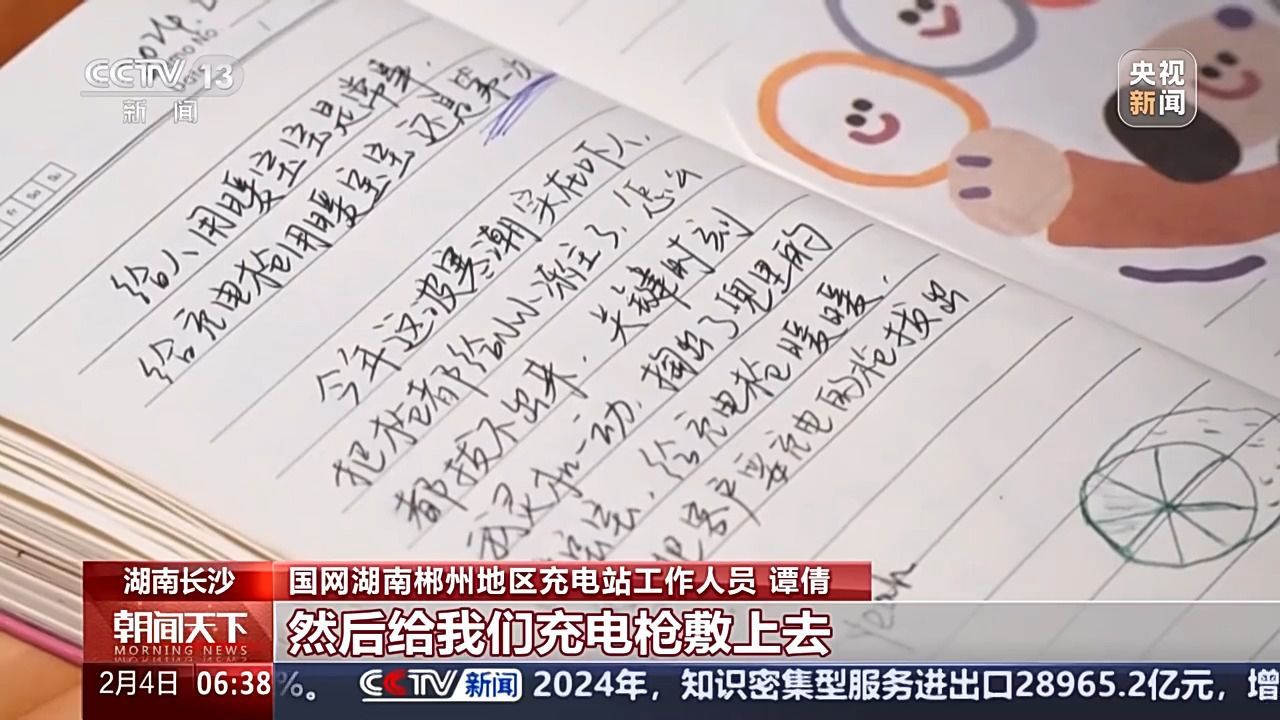 CCTV 13
新闻
央视
新闻
给人用暖宝宝是常事.
给充电枪用暖宝宝还是第一次
今年这波寒潮实在吓人.
把枪都给冰冻住了. 怎么
都拔不出来. 关键时刻
我灵机一动. 掏出了兜里的
宝. 给充电枪暖暖.
客户要充电的枪拔出
Yeah
湖南长沙
国网湖南郴州地区充电站工作人员 谭倩
朝闻天下
MORNING NEWS
然后给我们充电枪敷上去
2月4日 06:38
%。 CCTV新闻 2024年，知识密集型服务进出口28965.2亿元，增